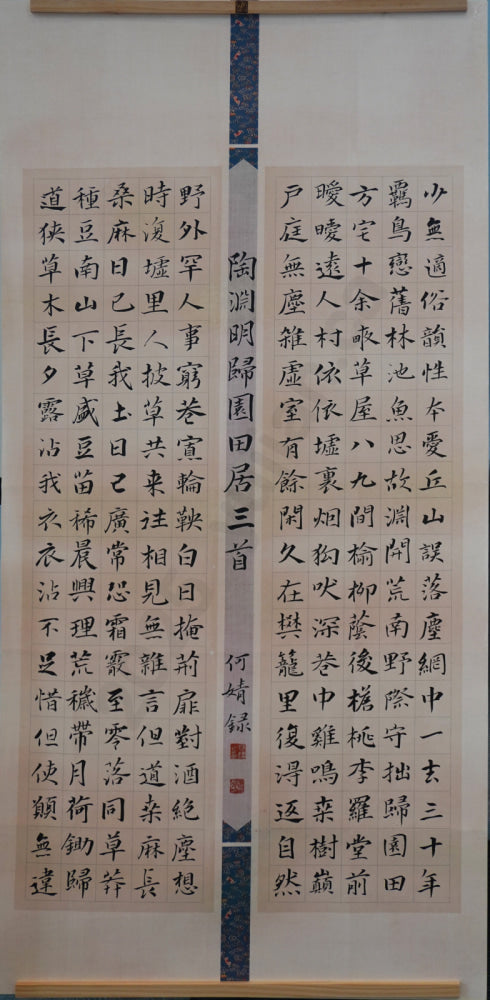 少無適俗韻性本愛丘山誤落塵網中一去三十年
羈鳥戀舊林池魚思故淵開荒南野際守拙歸園田
方宅十余畝草屋八九間榆柳蔭後檐桃李羅堂前
曖曖遠人村依依墟裏烟狗吠深巷中雞鳴桑樹巔
戶庭無塵雜虛室有餘閑久在樊籠里復得返自然
陶淵明歸園田居三首
何婧録
野外罕人事窮巷寡輪鞅白日掩荊扉對酒絕塵想
時復墟里人披草共来往相見無雜言但道桑麻長
桑麻日已長我土日已廣常恐霜霰至零落同草莽
種豆南山下草盛豆苗稀晨興理荒穢帶月荷鋤歸
道狹草木長夕露沾我衣衣沾不足惜但使願無違